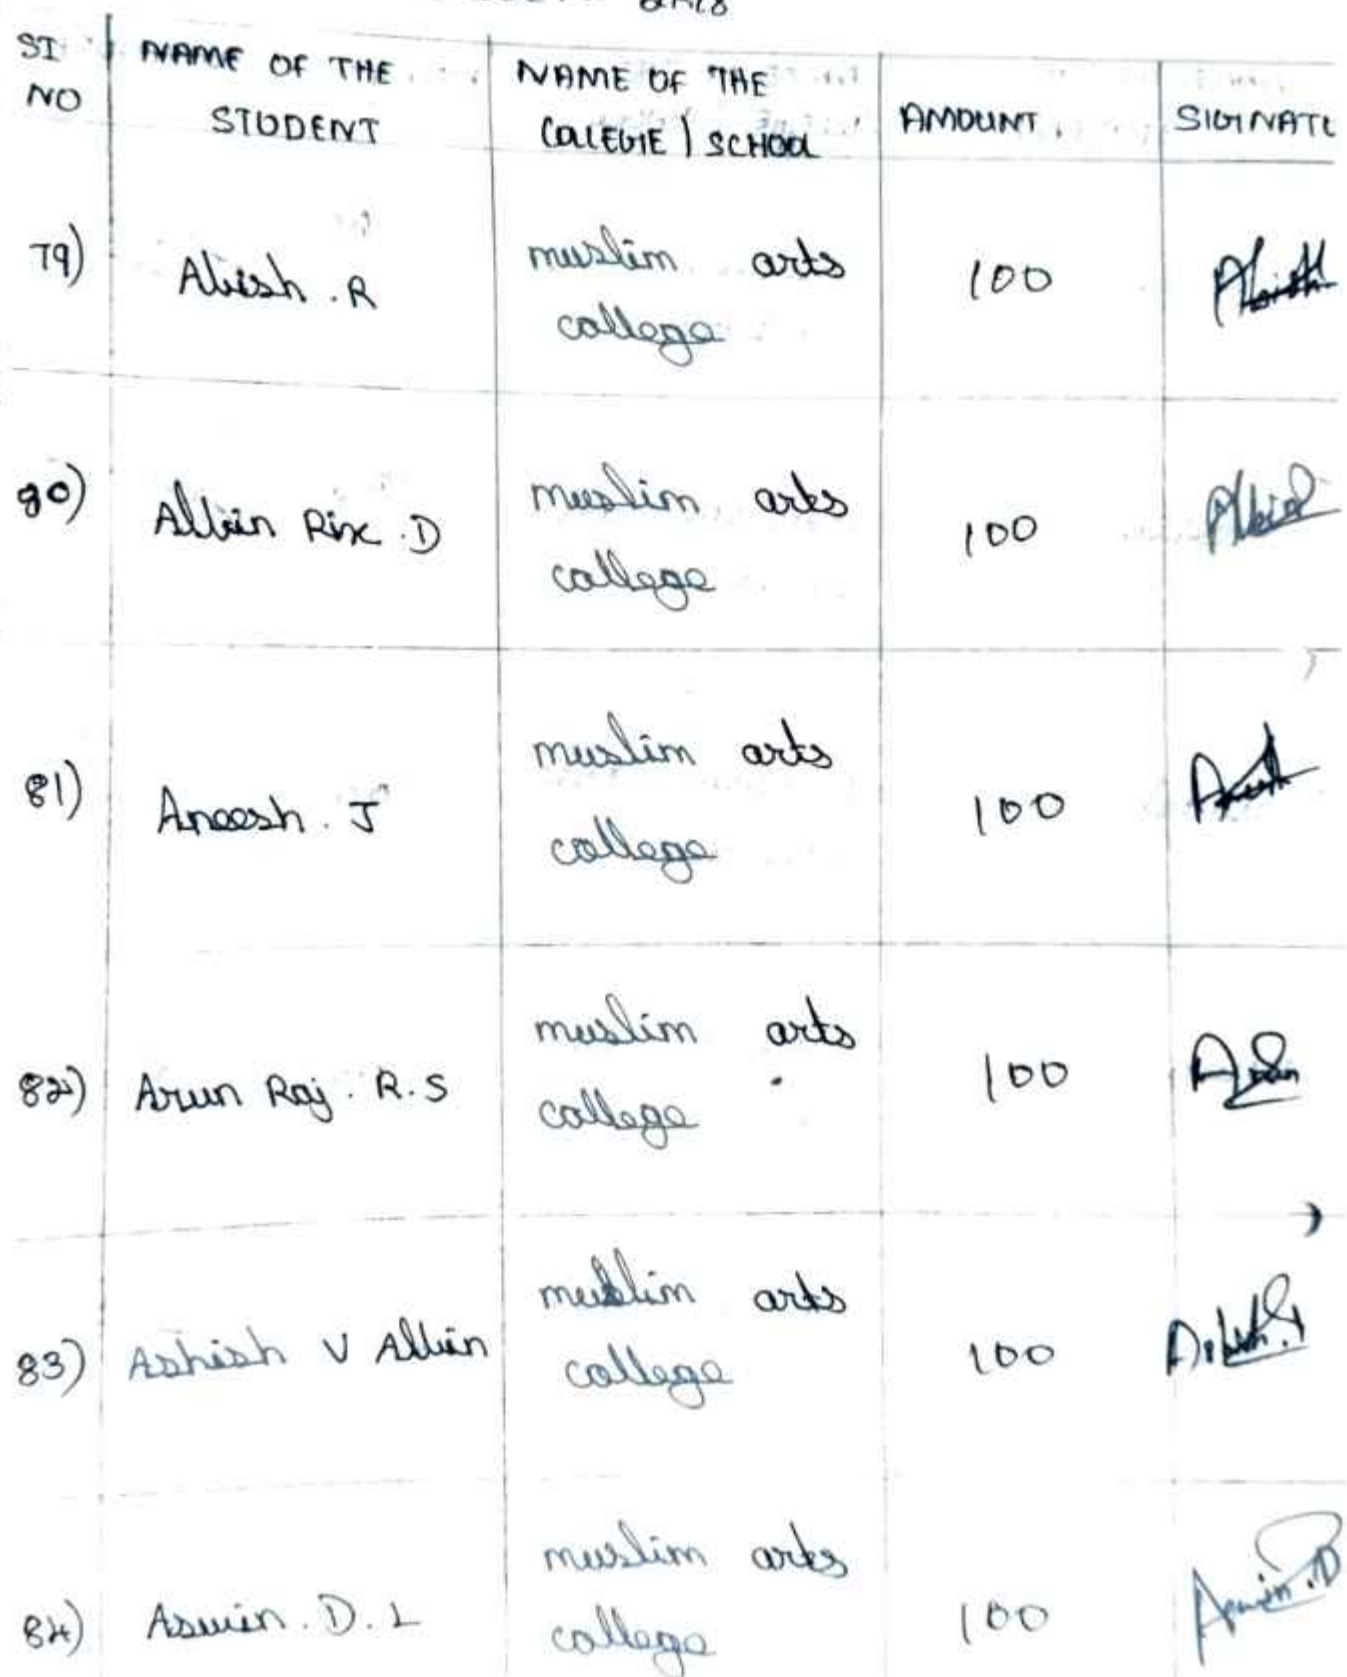 SI NO | NAME OF THE STUDENT | NAME OF THE COLLEGE | SCHOOL | AMOUNT | SIGINATU
79) Abish . R | muslim arts college | 100 | Abish
80) Albin Rix . D | muslim arts college | 100 | Albin
81) Aneesh . J | muslim arts college | 100 |
82) Arun Raj . R.S | muslim arts college | 100 | Arun
83) Ashish V Albin | muslim arts college | 100 |
84) Aswin . D . L | muslim arts college | 100 | Aswin . D